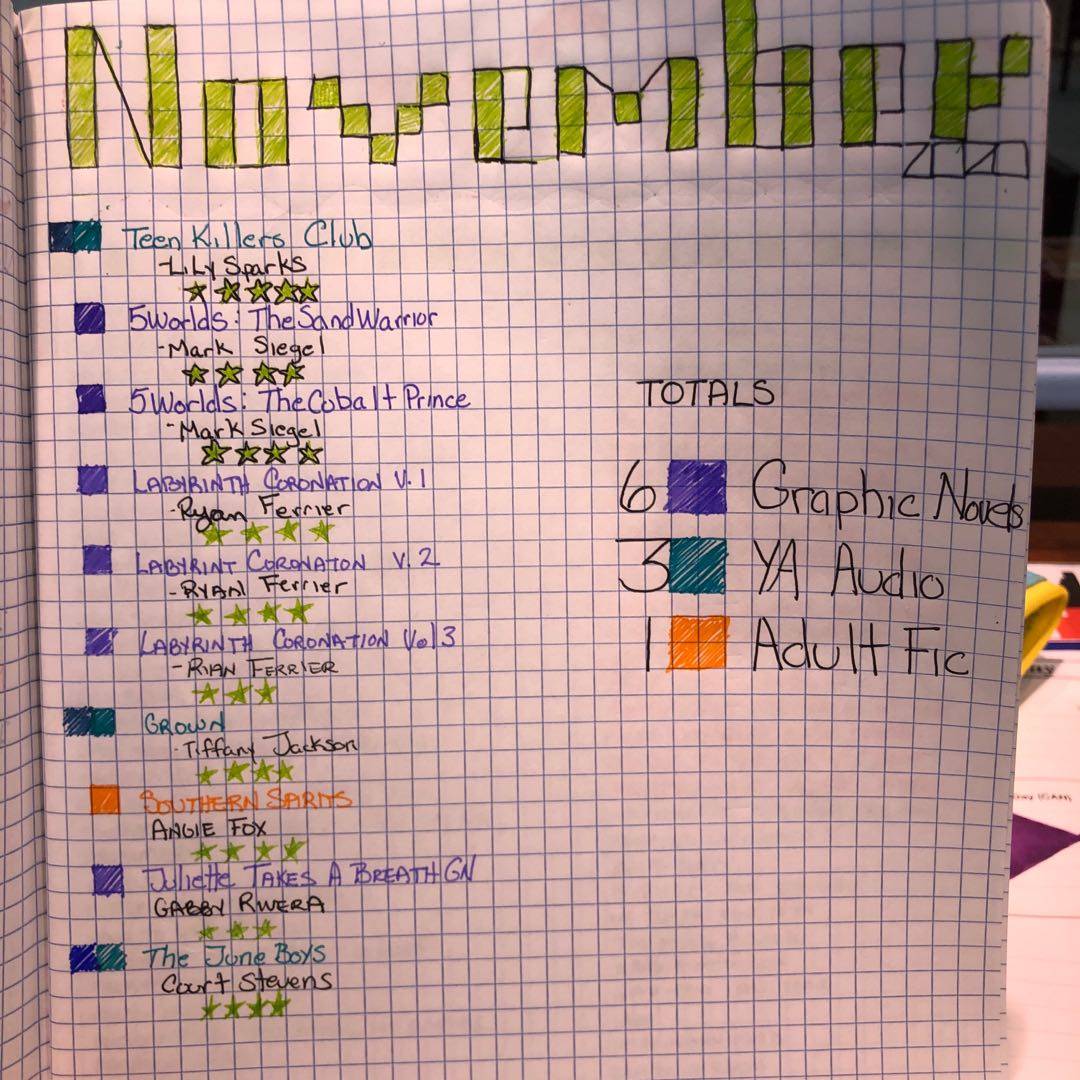 November
2020
Teen Killers Club
-Lily Sparks
5Worlds: The Sand Warrior
-Mark Siegel
5Worlds: The Cobalt Prince
-Mark Siegel
LABYRINTH CORONATION V. 1
-Ryan Ferrier
LABYRINT CORONATION V. 2
-RYAN Ferrier
LABYRINTH CORONATION Vol 3
-RYAN FERRIER
GROWN
-Tiffany Jackson
SOUTHERN SPIRITS
ANGIE FOX
Juliette TAKES A BREATH GN
GABBY RIVERA
The June Boys
Court Stevens
TOTALS
6 Graphic Novels
3 YA Audio
1 Adult Fic